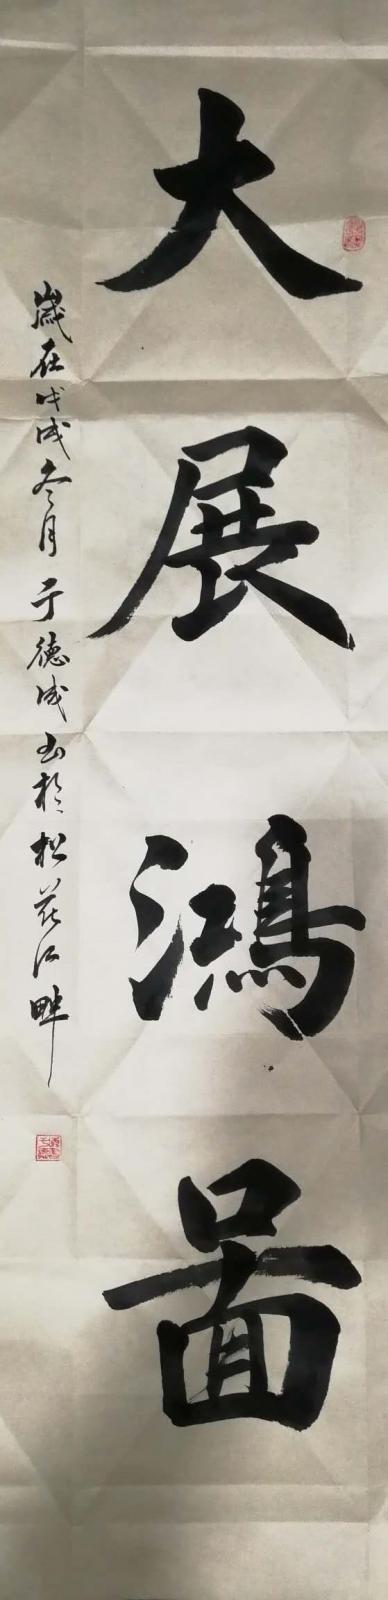 大展鴻圖
歲在戊戌冬月于德成书於松花江畔